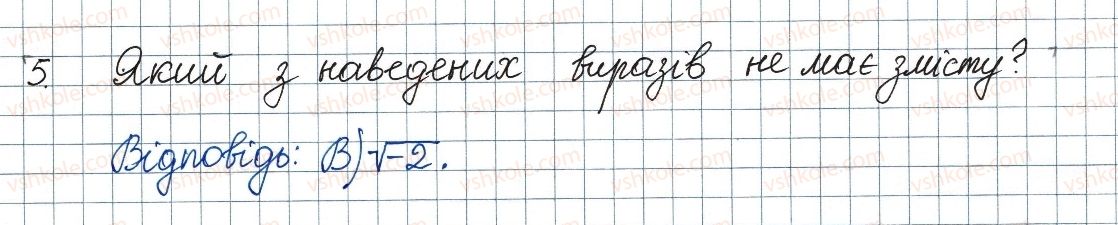 5. Який з наведених виразів не має змісту?
Відповідь: В) √-2.